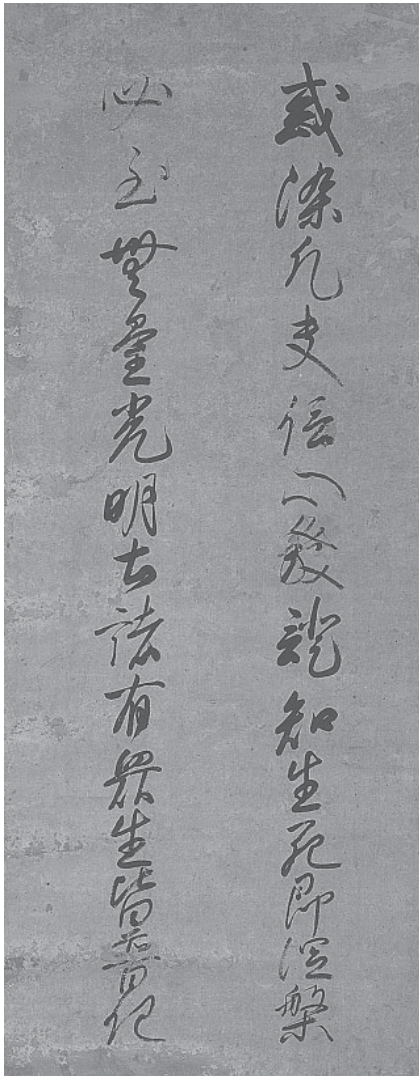 惑染凡夫信心發證知生死即涅槃
必至無量光明土諸有衆生皆普化